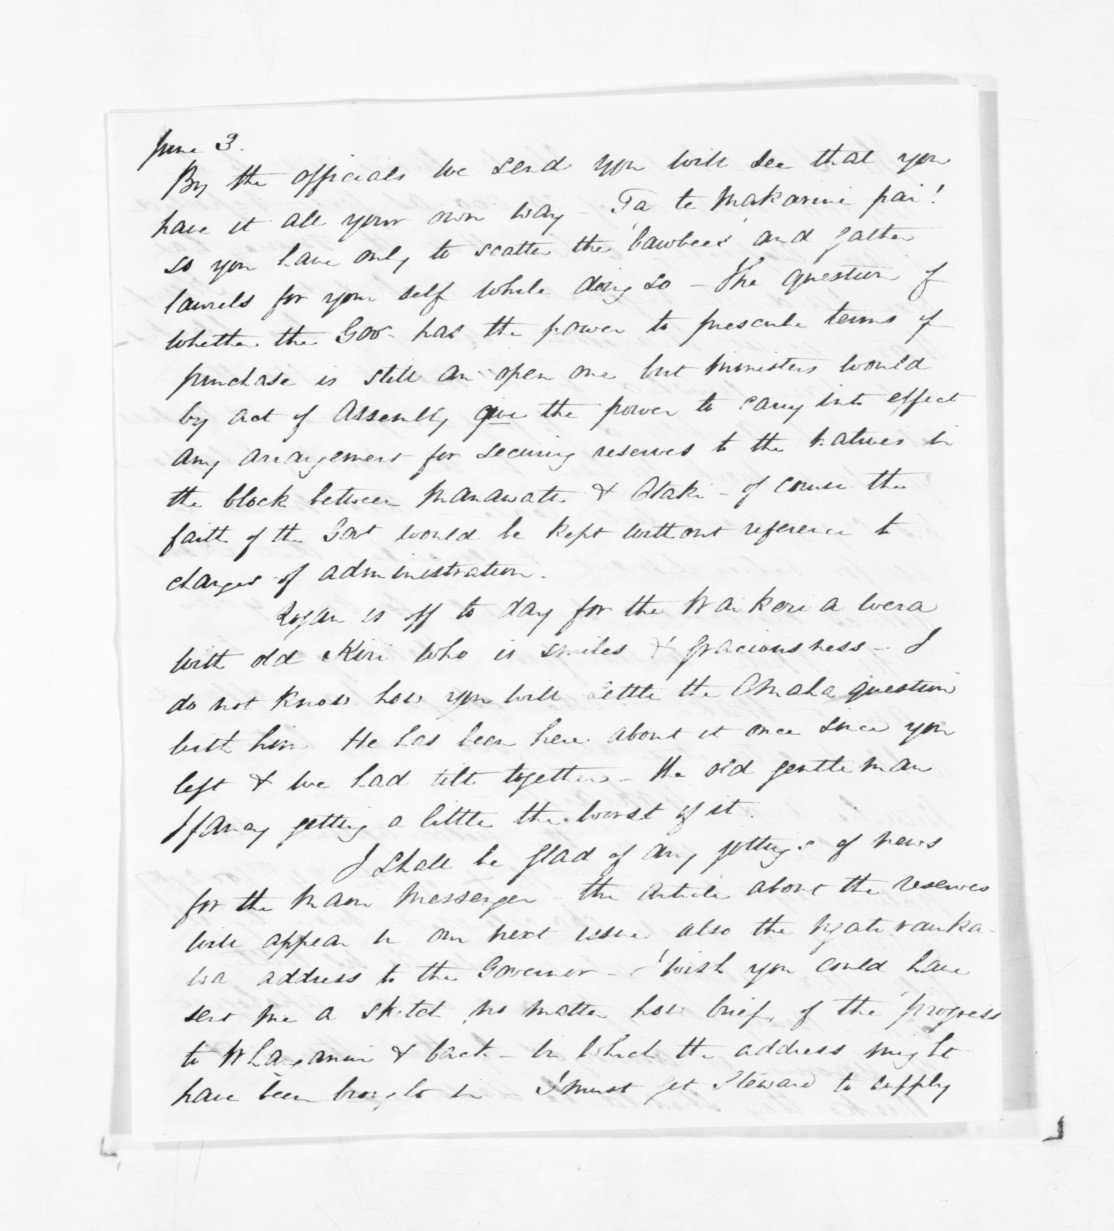 June 3.
By the officials we send you will see that you
have it all your own way - Ta te Makarini pai!
so you have only to scatter the 'bawbees' and gather
laurels for your self while doing so - The question of
whether the Govr. has the power to prescribe terms of
purchase is still an open one but Ministers would
by act of Assembly give the power to carry into effect
any arrangement for securing reserves to the Natives in
the block between Manawatu & Otaki - of course the
faith of the Govt would be kept without reference to
changes of administration.
Rogan is off to day for the Waikoriawera
with old Kiri who is smiles & graciousness - I
do not know how you will settle the Omaha question
with him He has been here about it once since you
left & we had tilt together - He old gentleman
I fancy getting a little the worst of it.
I shall be glad of any jottings of news
for the Maori Messenger - the article about the reserves
will appear in our next issue also the Ngatirauka-
wa address to the Governor - I wish you could have
sent me a sketch no matter how brief, of the 'progress
to Whanganui & back - in which the address might
have been brought in I must get Steward to supply